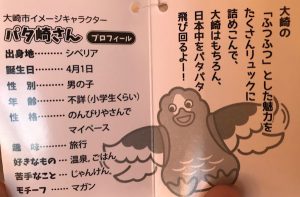 大崎市イメージキャラクター
パタ崎さん プロフィール
出身地 シベリア
誕生日 4月1日
性別 男の子
年齢 不詳(小学生くらい)
性格 のんびりやさんで
マイペース
趣味 旅行
好きなもの 温泉,ごはん
苦手なこと じゃんけん
モチーフ マガン
大崎の
「ふつふつ」とした魅力を
たくさんリュックに
詰めこんで、
大崎はもちろん、
日本中をパタパタ
飛び回るよー!